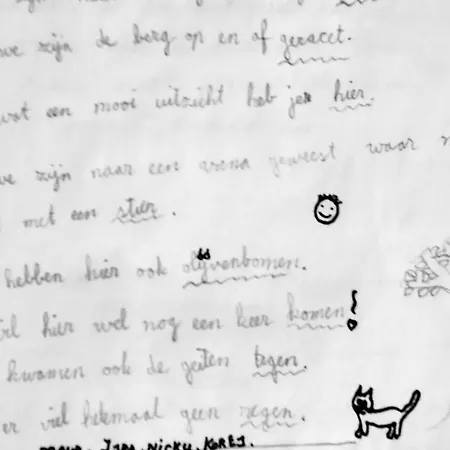 we zijn de berg op en af geracet.
wat een mooi uitzicht heb je hier.
we zijn naar een arena geweest waar
met een stier.
hebben hier ook olijvenbomen.
wil hier wel nog een keer komen!
kwamen ook de geiten tegen.
er viel helemaal geen regen.
NICKY, KOREJ.